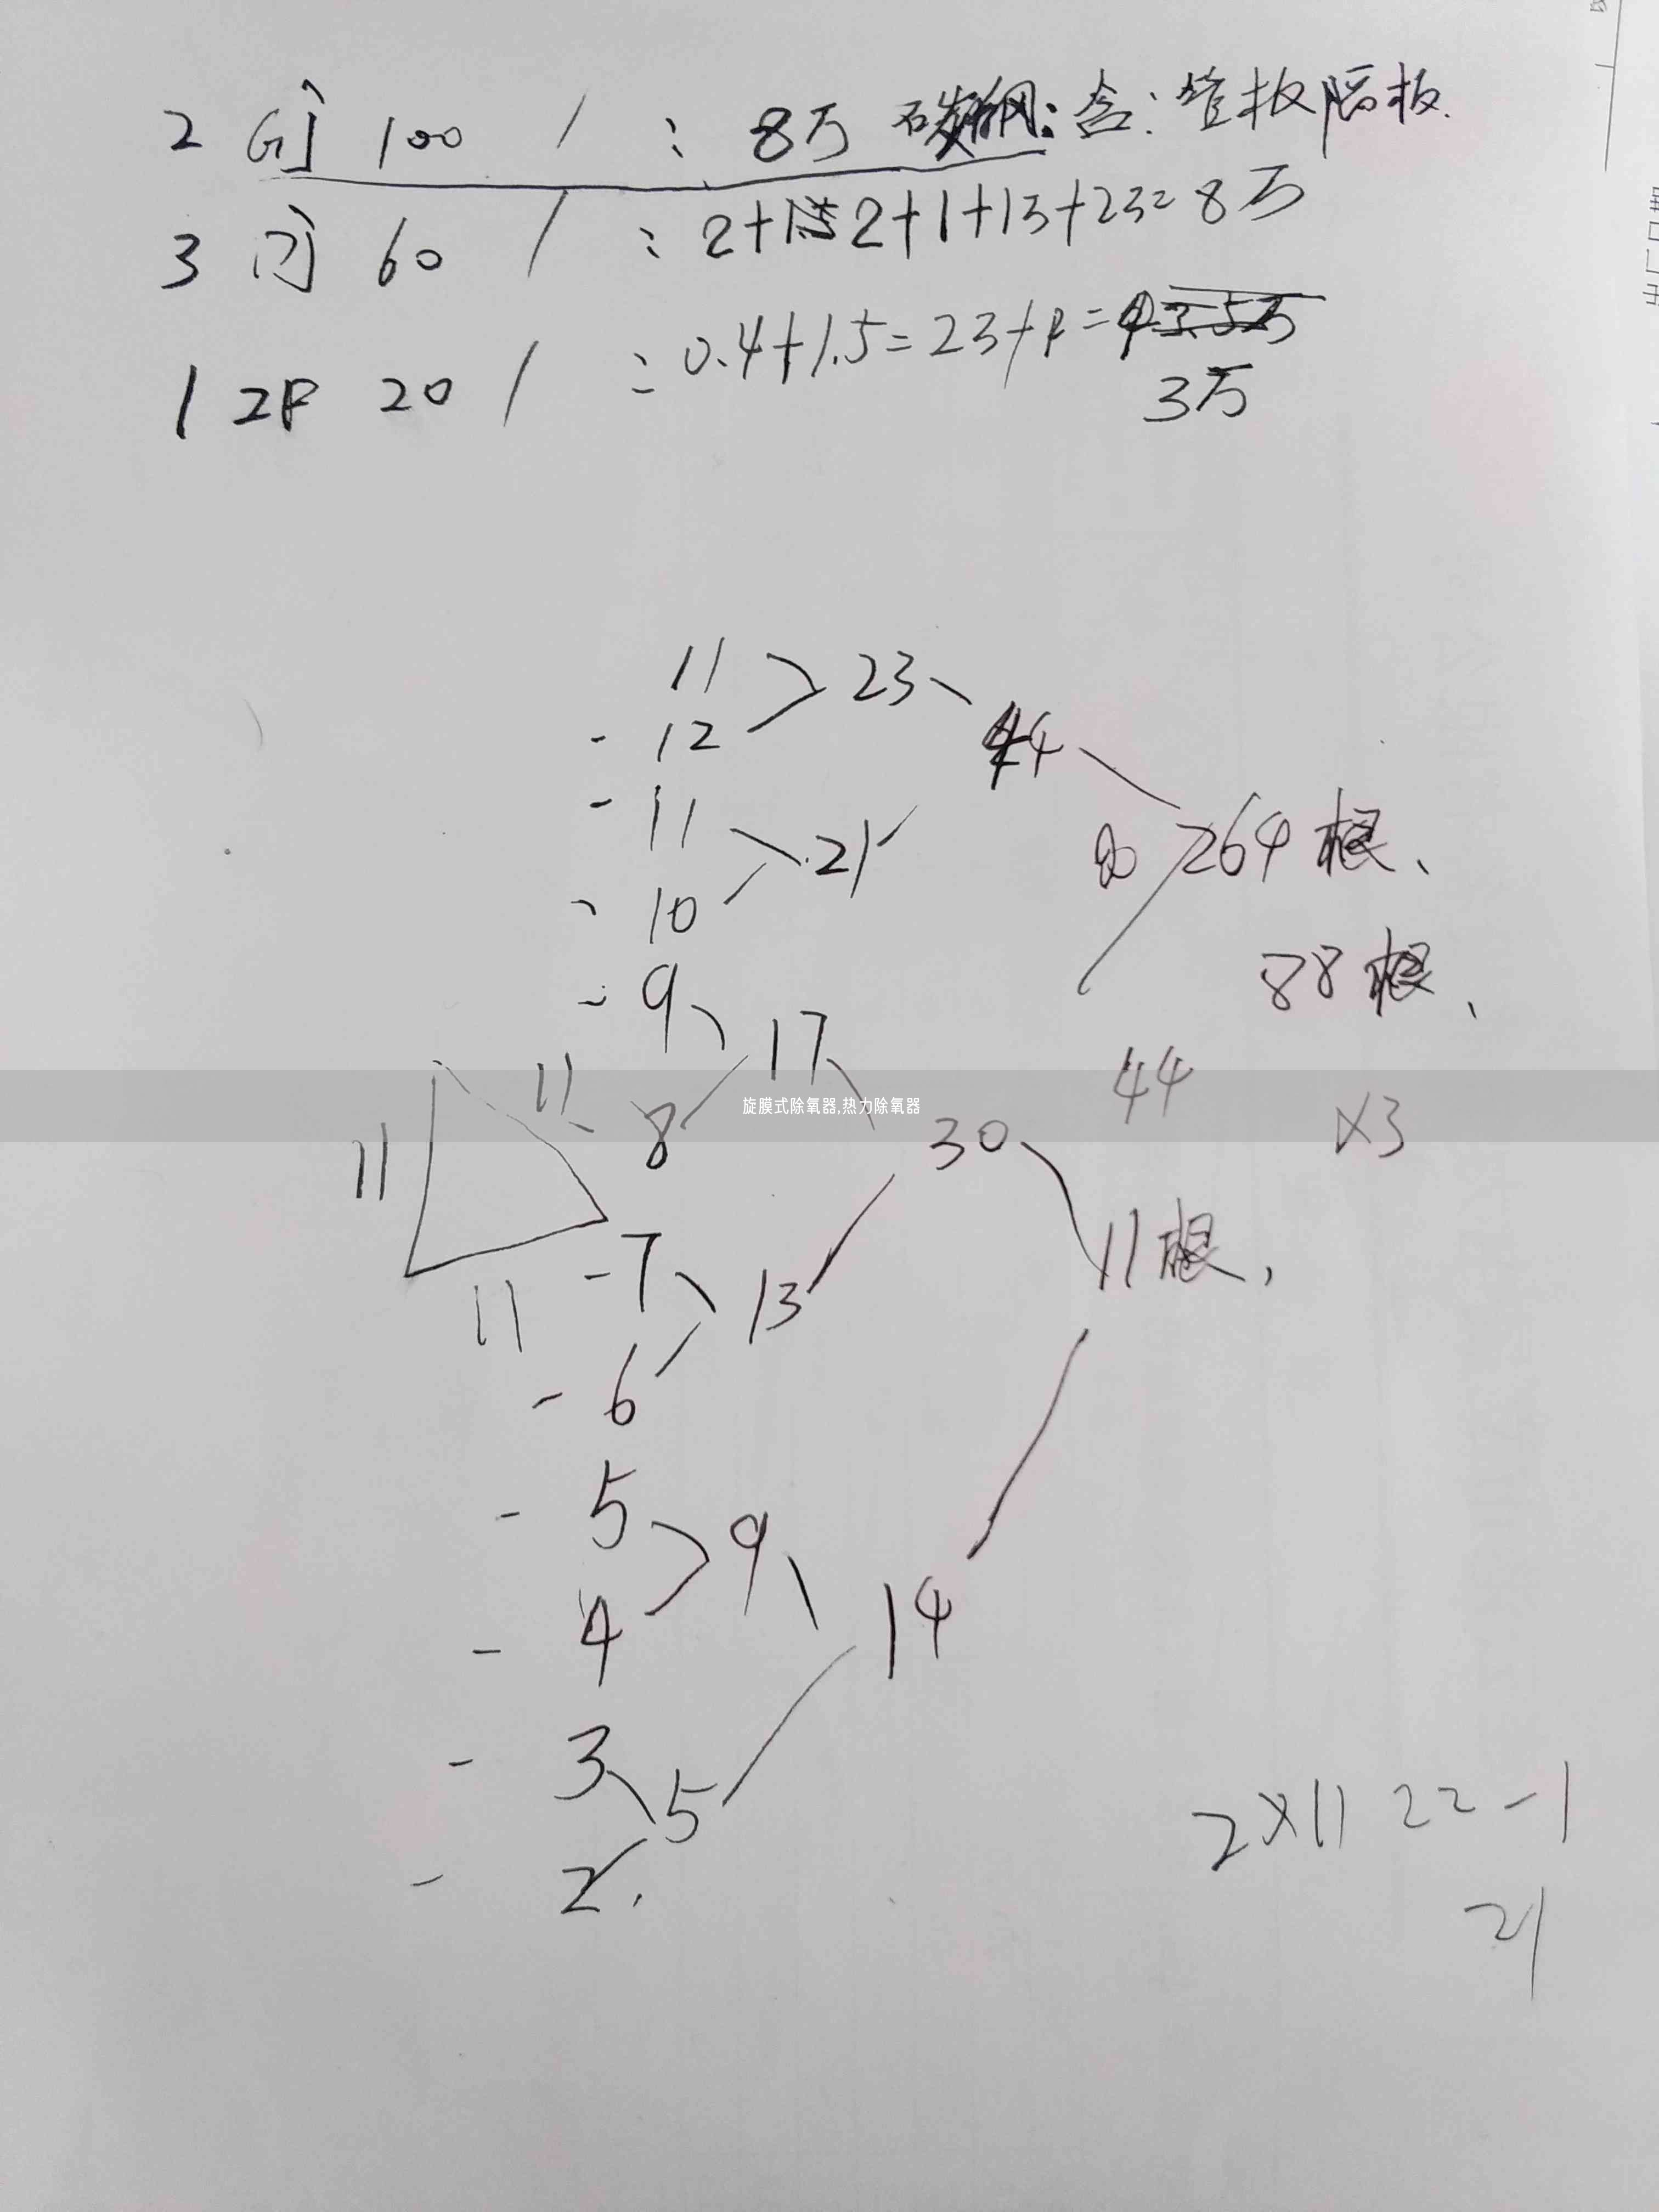 2 100 / : 8万 碳钢: 含: 管板隔板.
3 60 / : 2+1.5 2+1+13+23= 8万
1 20 / : 0.4+1.5=23+ =
3万
11 23
- 12
44
- 11 21
- 10
264根、
- 9 17
88根、
11 8
旋膜式除氧器,热力除氧器
30 44 ×3
11
- 7 13 11根,
11
- 6
- 5 9
- 4 14
- 3 5
- 2.
2×11 22-1
21